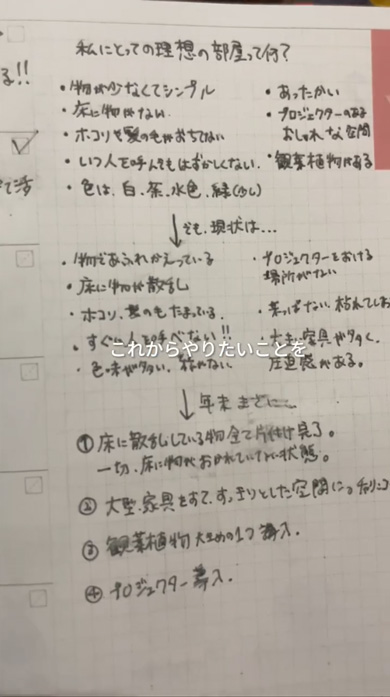 る!!
て活
私にとっての理想の部屋って何?
・物が少なくてシンプル
・床に物がない
・ホコリや髪の毛がおちてない
・いつ人を呼んでもはずかしくない
・色は、白、茶、水色、緑(少し)
・あったかい
・プロジェクターのある
おしゃれな空間
・観葉植物がある
↓でも、現状は...
・物であふれかえっている
・床に物が散乱
・ホコリ、髪の毛たまっている
・すぐ人を呼べない!!
・色味が多い、
・プロジェクターをおける
場所がない
・葉っぱない 枯れてしま
・大きい家具が多く、
圧迫感がある。
これからやりたいことを
↓年末までに
①床に散乱している物全て片付け完了。
一切、床に物がおかれていない状態。
②大型家具をすて、すっきりとした空間に。
③観葉植物大きめの1つ導入.
④プロジェクター導入.